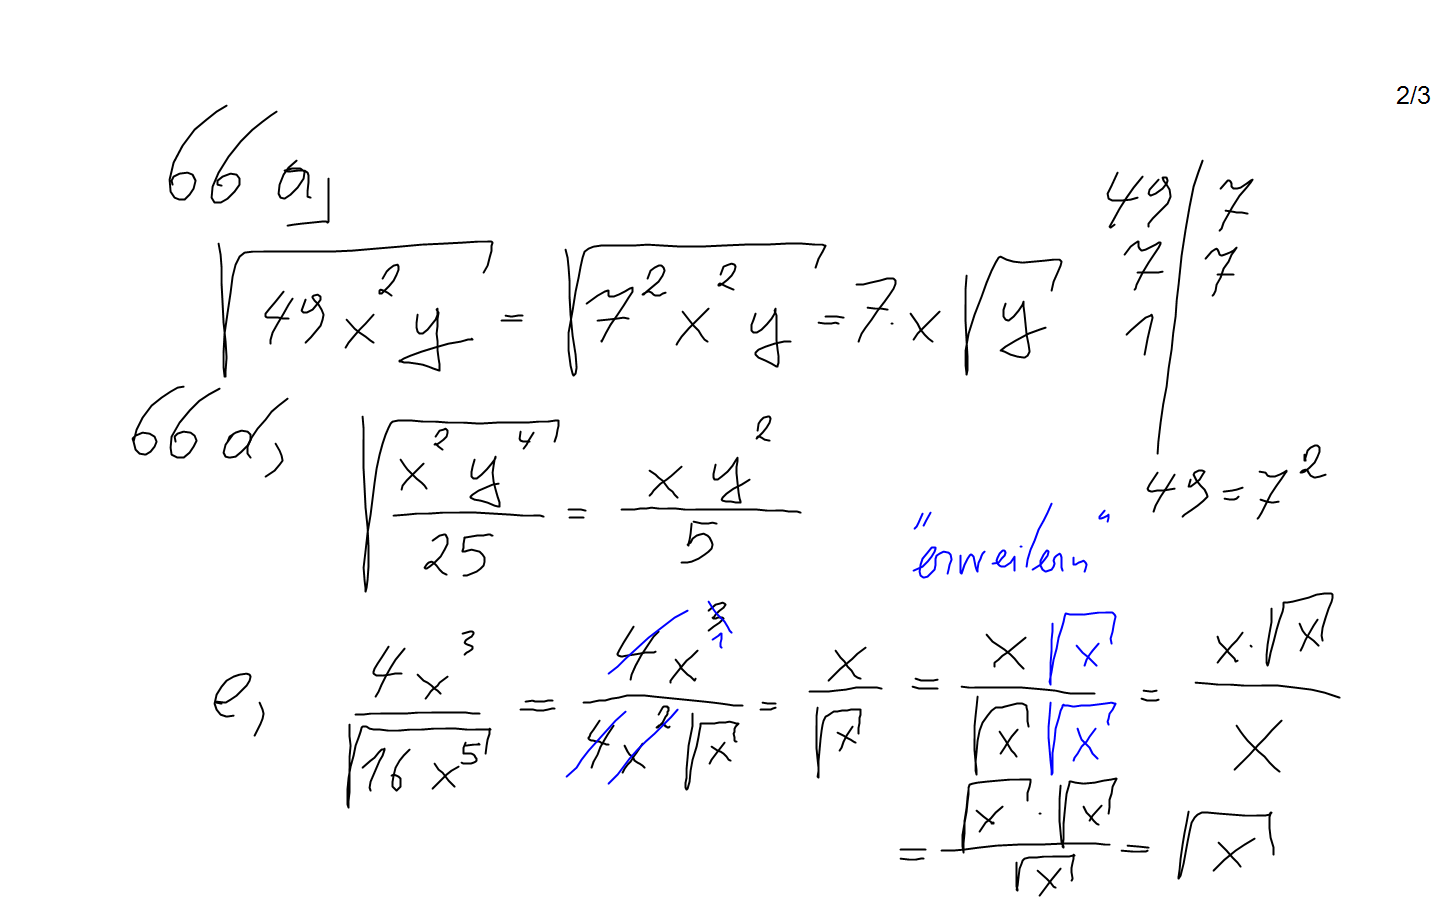 2/3
66 a,
√(49x²y) = √(7²x²y) = 7·x√y
49 | 7
7 | 7
1 |
49 = 7²
66 d,
√(x²y⁴/25) = xy²/5
"erweitern"
e, 4x³/√(16x⁵) = 4x³ ¹/(4x²√x) = x/√x = x√x/(√x√x) = x·√x/x
= √x·√x/√x = √x